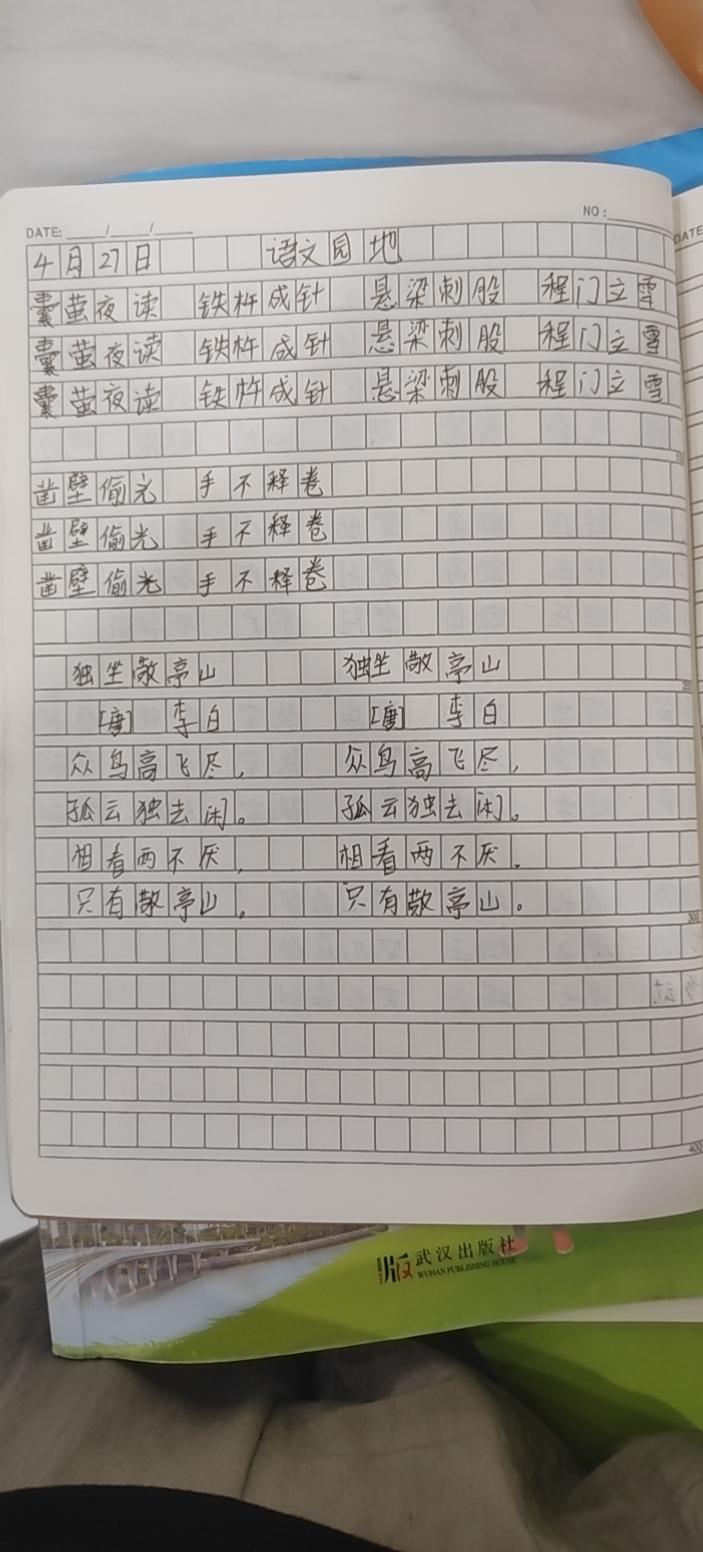 DATE: ____/____/____ NO:____
DATE
4月27日 语文园地
囊萤夜读 铁杵成针 悬梁刺股 程门立雪
囊萤夜读 铁杵成针 悬梁刺股 程门立雪
囊萤夜读 铁杵成针 悬梁刺股 程门立雪
凿壁偷光 手不释卷
凿壁偷光 手不释卷
凿壁偷光 手不释卷
独坐敬亭山 独坐敬亭山
[唐] 李白 [唐] 李白
众鸟高飞尽, 众鸟高飞尽,
孤云独去闲。 孤云独去闲。
相看两不厌, 相看两不厌.
只有敬亭山。 只有敬亭山。
300
400
武汉出版社
WUHAN PUBLISHING HOUSE